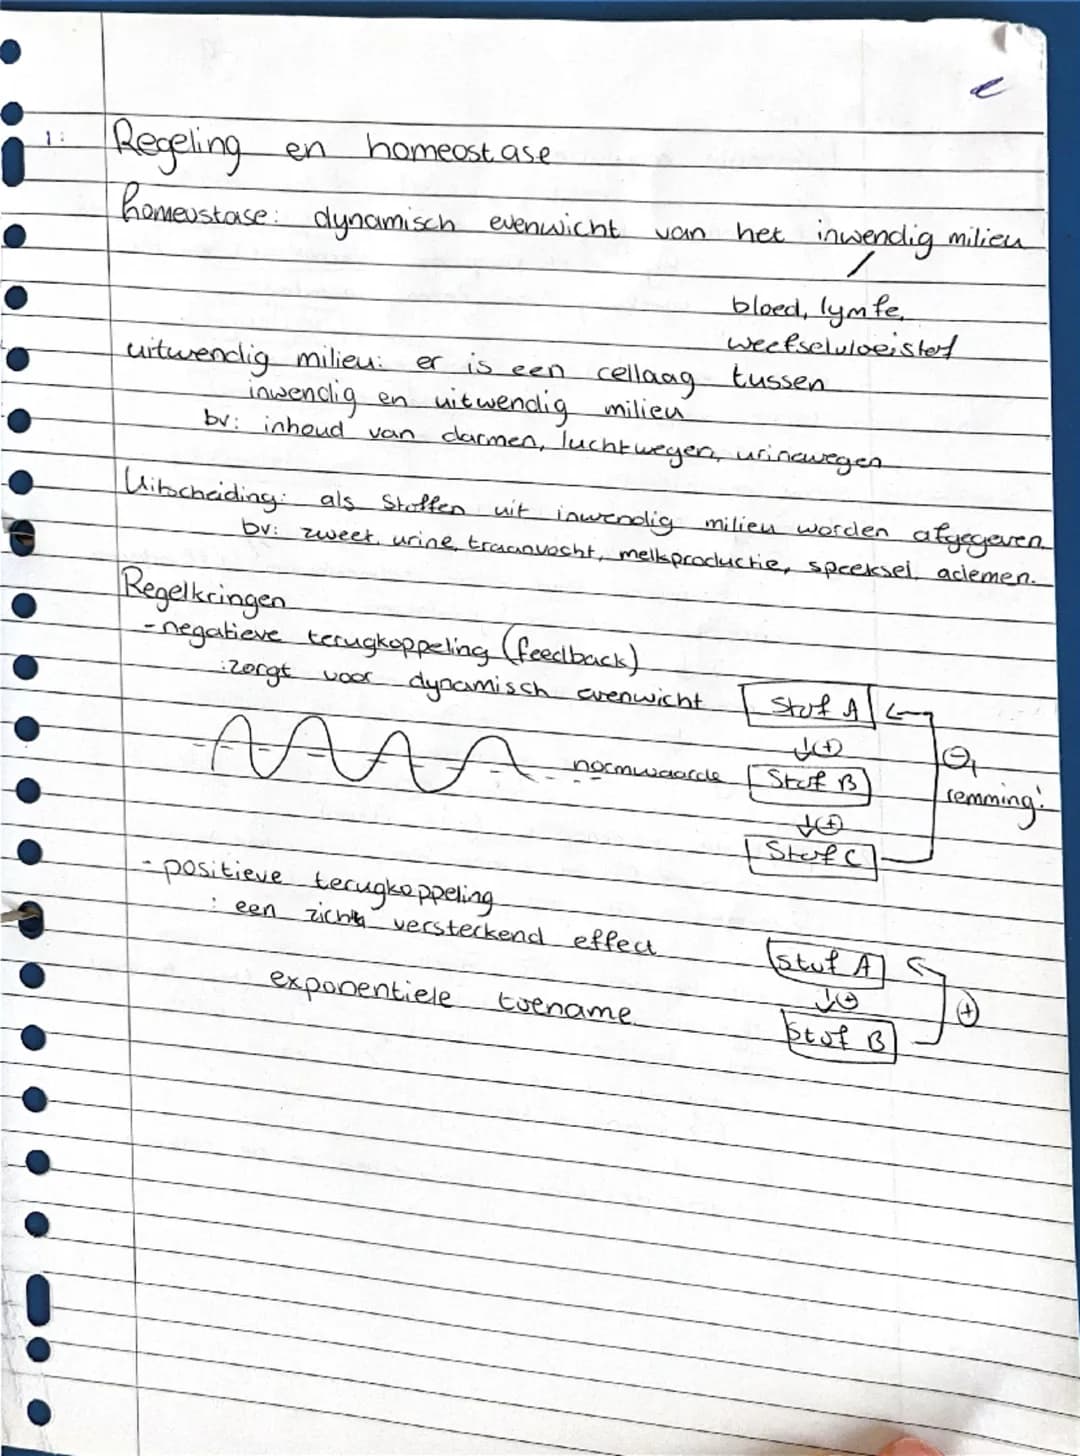 1: Regeling en homeostase
homeostase: dynamisch evenwicht van het inwendig milieu
bloed, lymfe,
weefselvloeistof
uitwendig milieu: er is een cellaag tussen
inwendig en uitwendig milieu
bv: inhoud van darmen, luchtwegen, urinewegen
Uitscheiding: als stoffen uit inwendig milieu worden afgegeven
bv: zweet, urine, traanvocht, melkproductie, speeksel, ademen.
Regelkringen
-negatieve terugkoppeling (feedback)
:zorgt voor dynamisch evenwicht
normwaarde
Stof A
↓(+)
Stof B
↓(+)
Stof C
(-),
remming!
-positieve terugkoppeling
: een zich versteckend effect
exponentiele toename
Stof A
↓(+)
Stof B
(+)